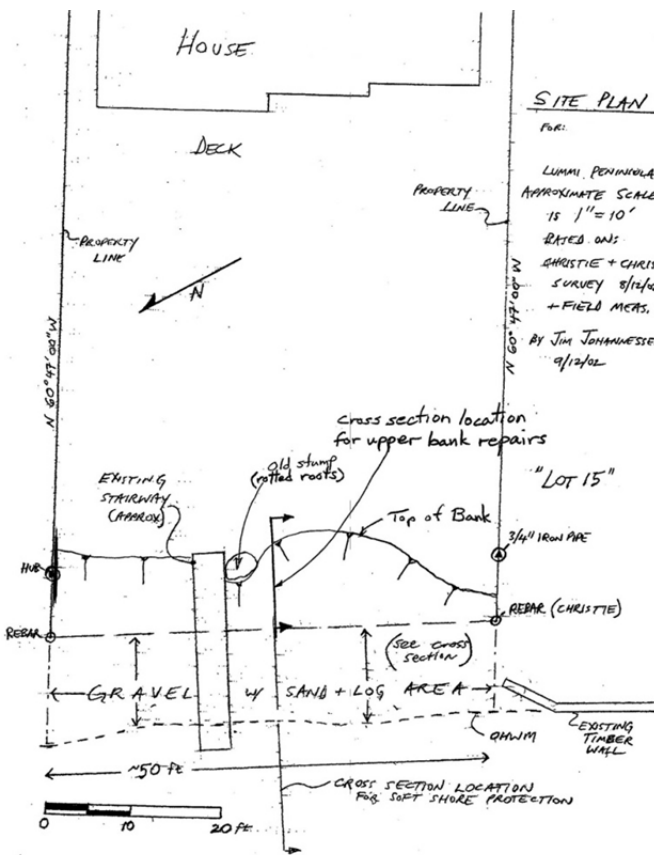 HOUSE
DECK
SITE PLAN
FOR:
LUMMI PENINSULA
APPROXIMATE SCALE
IS 1"=10'
BASED ON:
CHRISTIE + CHRIS
SURVEY 8/12/0
+ FIELD MEAS.
BY JIM JOHANNESSE
9/12/02
PROPERTY
LINE
PROPERTY
LINE
N
N 60°47'00"W
N 60°47'00"W
cross section location
for upper bank repairs
"LOT 15"
old stump
(rotted roots)
EXISTING
STAIRWAY
(APPROX)
Top of Bank
3/4" IRON PIPE
HUB
REBAR
REBAR (CHRISTIE)
(see cross
section)
GRAVEL w/ SAND + LOG AREA
OHWM
EXISTING
TIMBER
WALL
~50 ft
CROSS SECTION LOCATION
FOR SOFT SHORE PROTECTION
0 10 20 ft